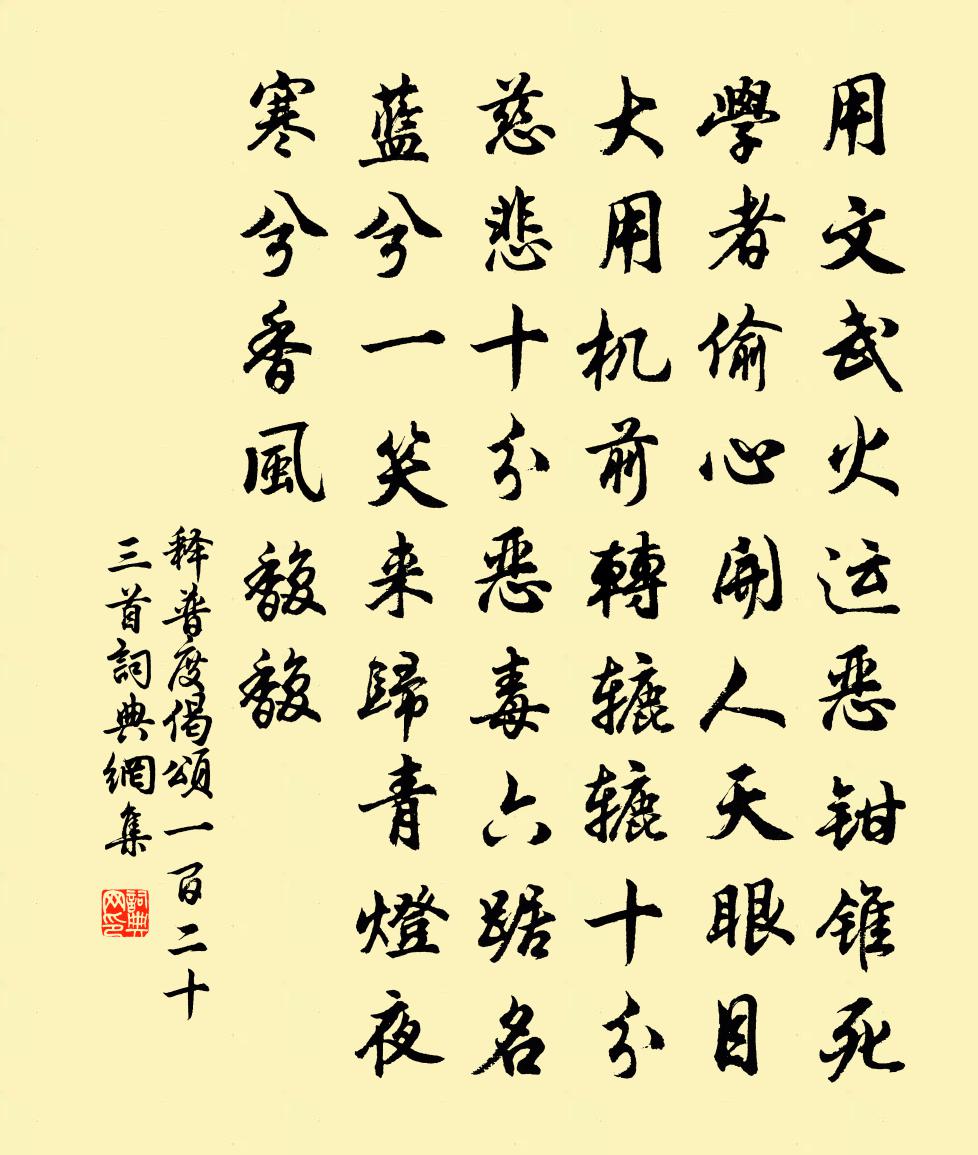 用文武火运恶钳锥死
學者偷心開人天眼目
大用机前轉辘辘十分
慈悲十分恶毒六踞名
蓝兮一笑来歸青燈夜
寒兮香風馥馥
释普度偈頌一百二十
三首詞典網集
詞典网印